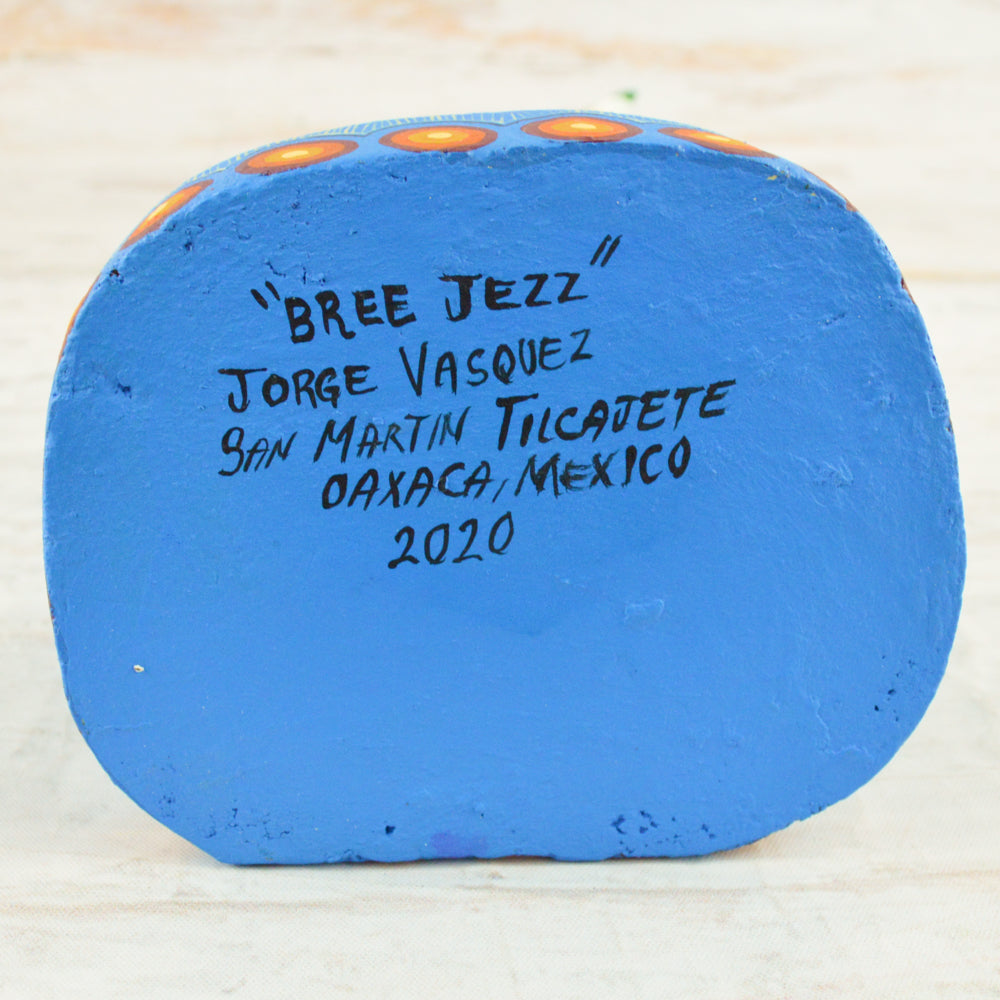 "BREE JEZZ"
JORGE VASQUEZ
SAN MARTIN TILCAJETE
OAXACA, MEXICO
2020